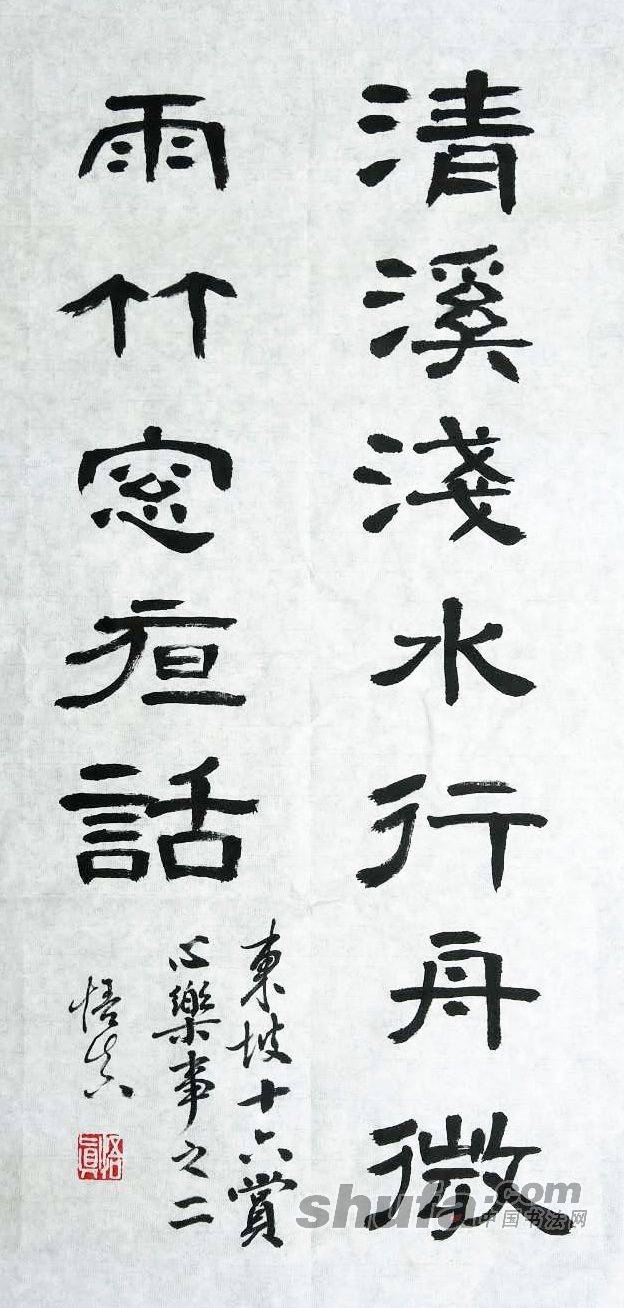 清溪淺水行舟微
雨竹窓亱話
東坡十六賞
心樂事之二
悟真
悟眞
shufa.com
中国书法网